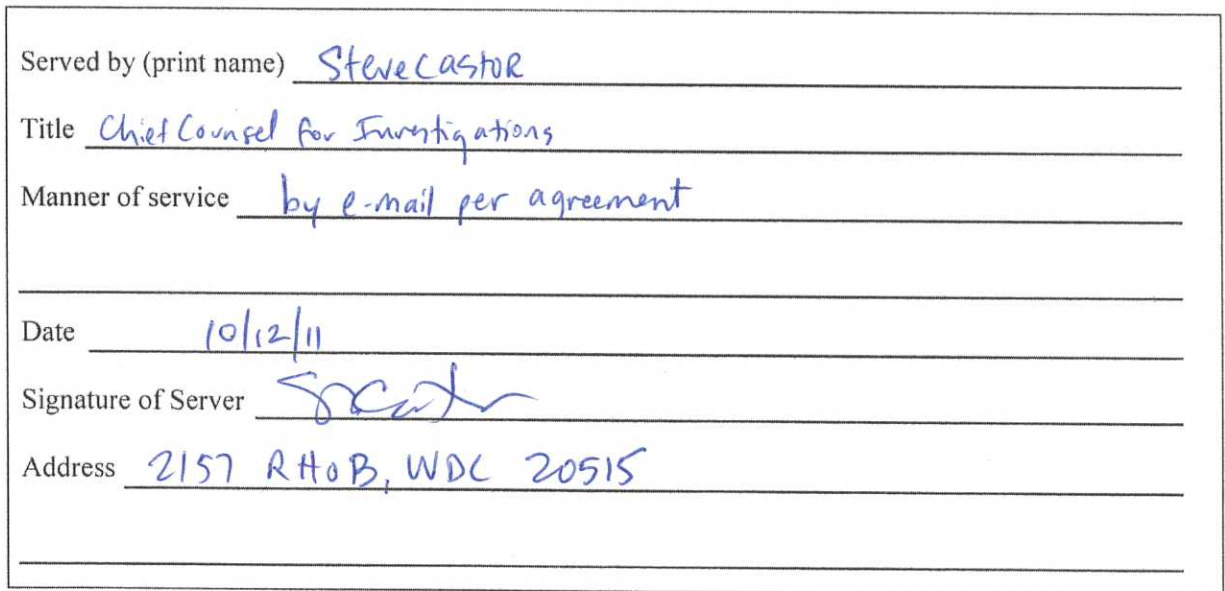 Served by (print name) Steve Castor
Title Chief Counsel for Investigations
Manner of service by e-mail per agreement
Date 10/12/11
Signature of Server
Address 2157 RHOB, WDC 20515